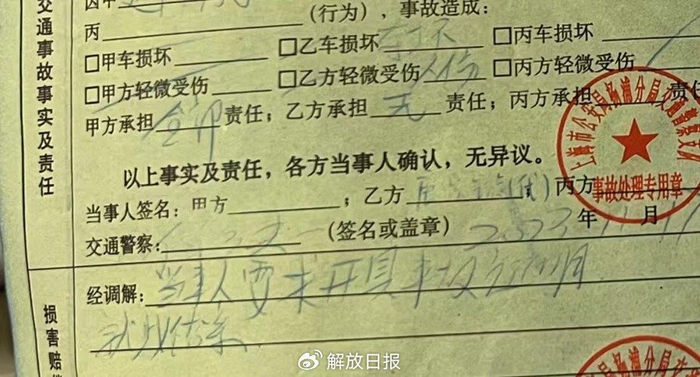 交通事故事实及责任
因甲
丙 (行为),事故造成:
□甲车损坏 □乙车损坏 □丙车损坏
□甲方轻微受伤 □乙方轻微受伤 人伤 □丙方轻微受伤
甲方承担 全部 责任;乙方承担 无 责任;丙方承担
以上事实及责任,各方当事人确认,无异议。
当事人签名:甲方 ;乙方 ;丙方
交通警察: (签名或盖章) 2023年 月
上海市公安局杨浦分局交通警察支队
事故处理专用章
损害赔偿
经调解: 当事人要求开具事故证明
解放日报